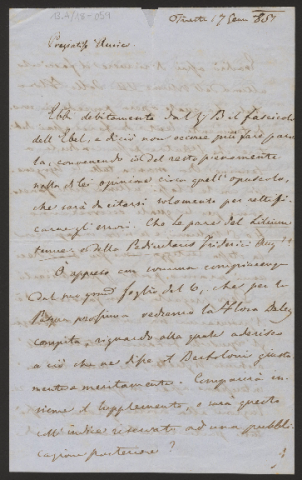 Trieste 17 Genn. 857
Pregiatiss. Amico
Ebbi debitamente dal B il fascicolo
dell'Ebel, e di ciò non occorre più far paro-
la, convenendo io del resto pienamente
nella di lei opinione circa quell'opuscolo,
che sarà da citarsi solamente per rettifi-
carne gli errori. Che le pare del
e della Pedicularis Friderici Aug.
Ò appreso con somma compiacenza
dal suo grad. foglio del 6, che per la
Pasqua prossima vedremo la Flora Dalm.
compita, riguardo alla quale aderisco
a ciò che ne disse il Bertoloni giusta-
mente e meritamente. Comparirà in-
sieme il supplemento, o sarà questo
coll'indice riservato ad una pubbli-
cazione posteriore?